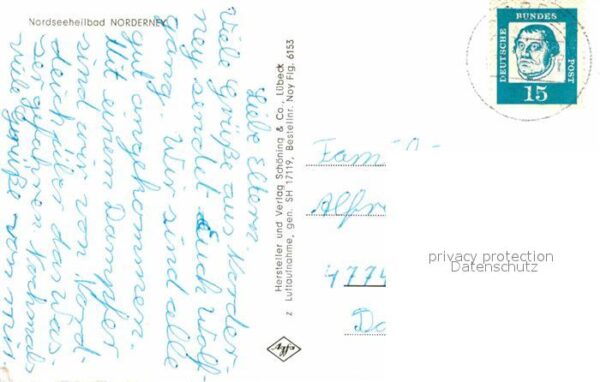 Nordseeheilbad NORDERNEY
Liebe Eltern.
Viele Grüße aus Norder-
ney sendet Euch Wolf-
gang. Wir sind alle
gut angekommen.
Mit einem Dampfer
sind wir von Nord-
deich über das Was-
ser gefahren. Nochmals
viele Grüße von mir.
Hersteller und Verlag Schöning & Co., Lübeck
z Luftaufnahme, gen. SH 17119, Bestellnr. Noy Flg. 6153
DEUTSCHE BUNDES POST
15
Fam
Alfr
4774
privacy protection
Datenschutz